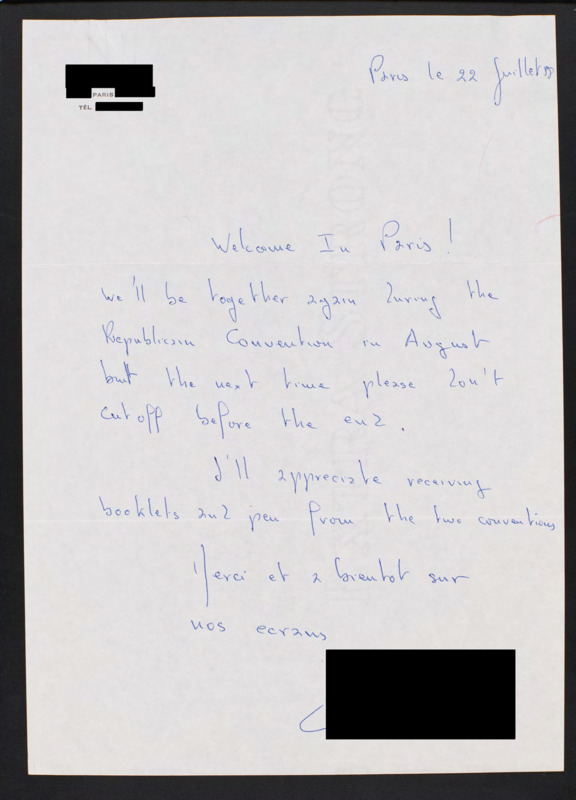 PARIS
TÉL.
Paris le 22 Juillet
Welcome In Paris!
We'll be together again during the
Republicain Convention in August
but the next time please don't
cut off before the end.
I'll appreciate receiving
booklets and pen from the two conventions
Merci et a bientot sur
nos ecrans